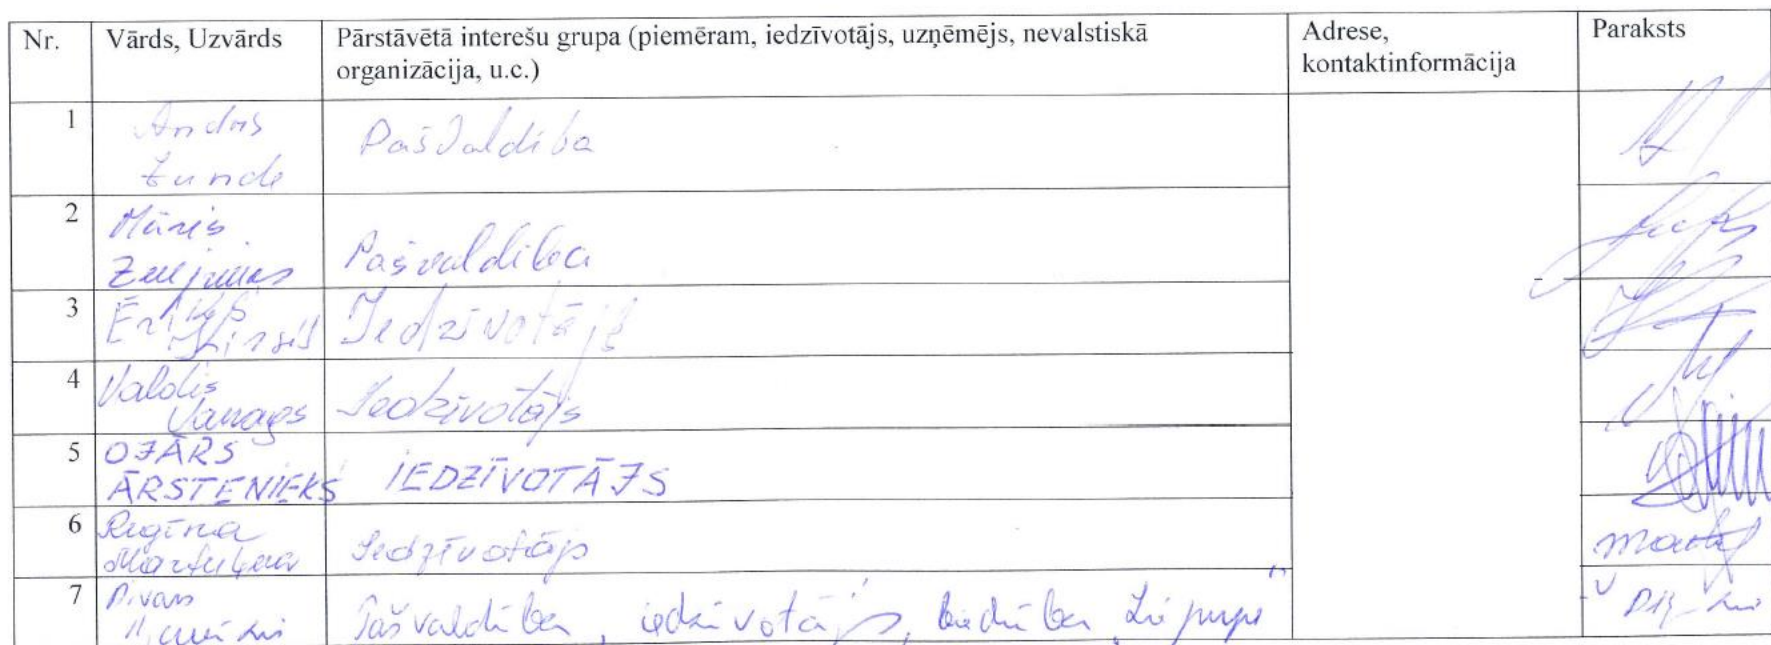 Nr.
Vārds, Uzvārds
Pārstāvētā interešu grupa (piemēram, iedzīvotājs, uzņēmējs, nevalstiskā
organizācija, u.c.)
Adrese,
kontaktinformācija
Paraksts
1
Andris
Zunde
Pašvaldība
2
Māris
Pašvaldība
3
Ēriks
Iedzīvotājs
4
Valdis
Vanags
Iedzīvotājs
5
OJĀRS
ĀRSTENIEKS
IEDZĪVOTĀJS
6
Regīna
Iedzīvotājs
7
Pašvaldība, iedzīvotājs, biedrība